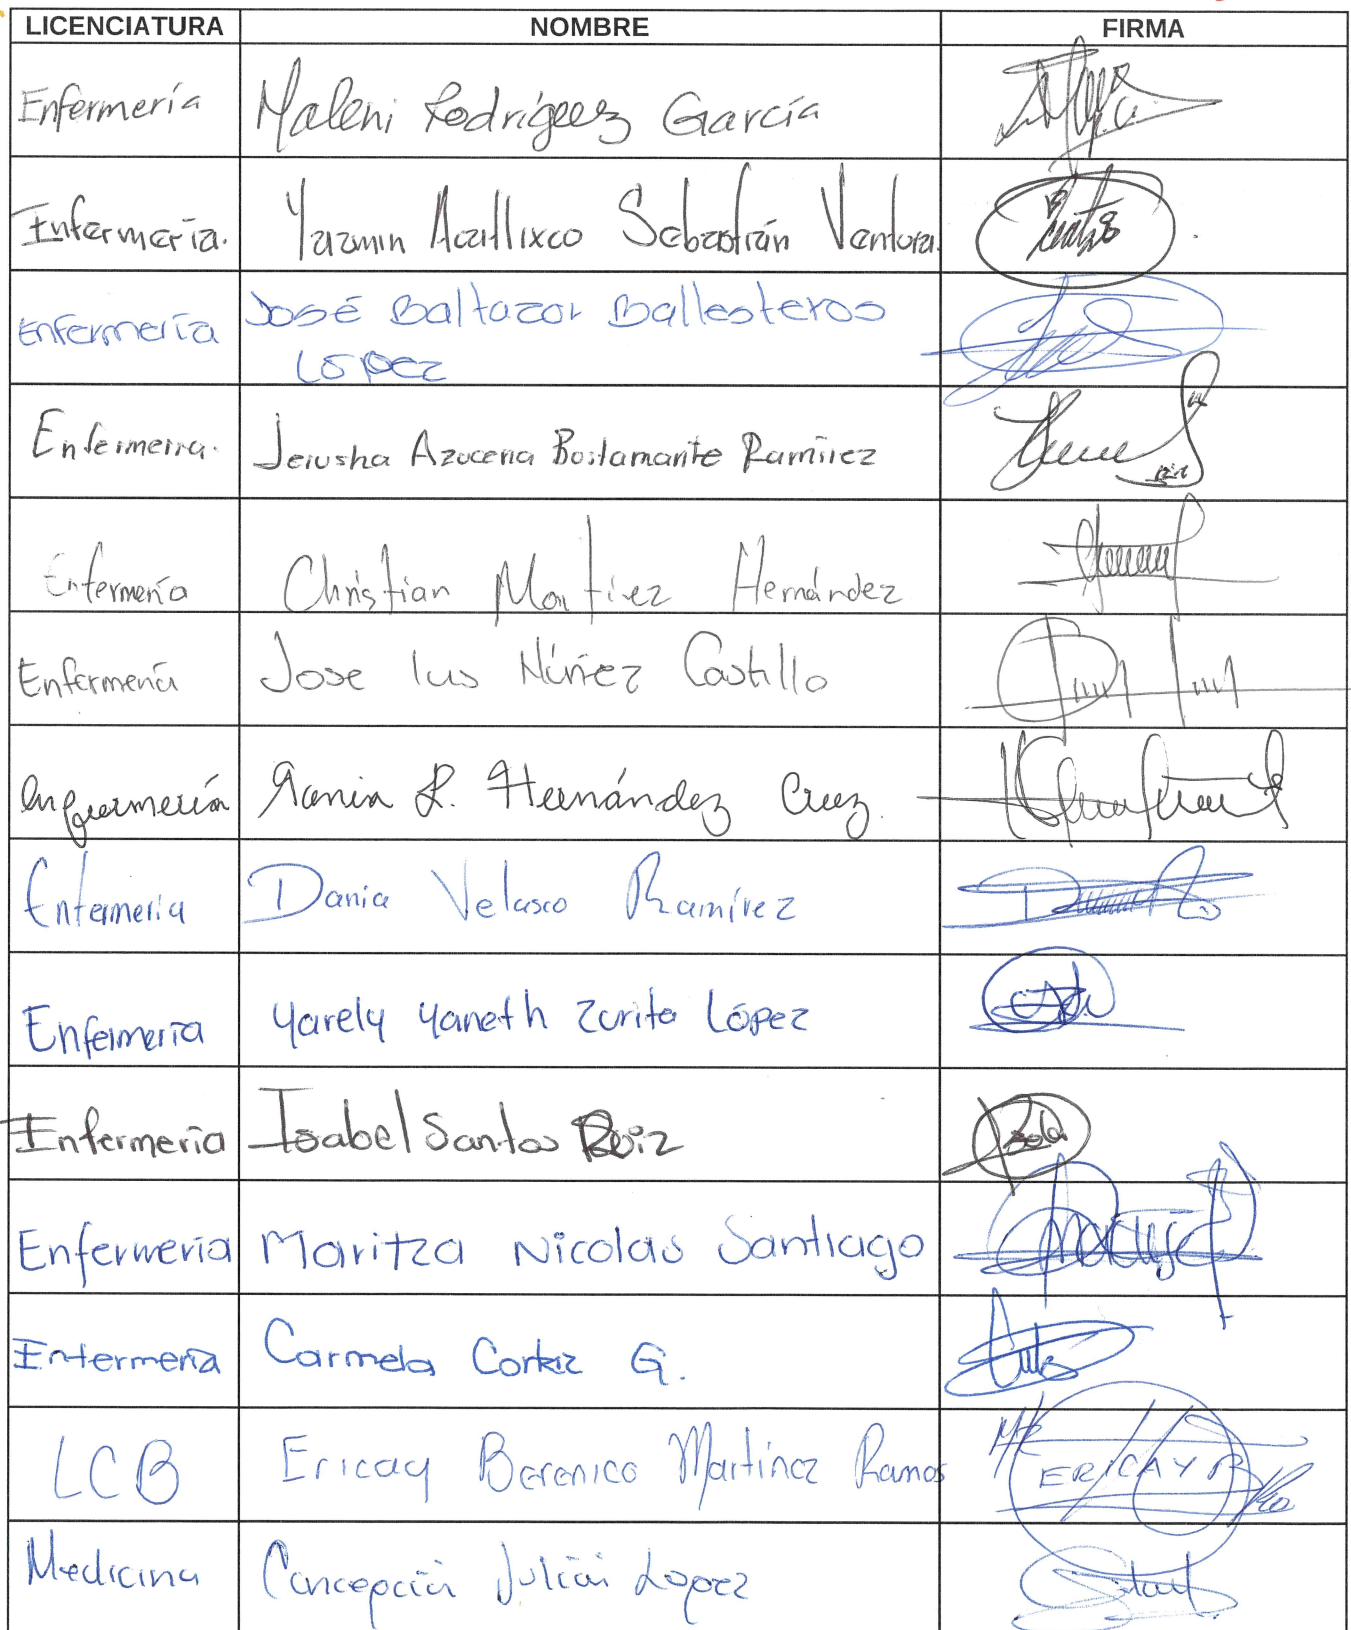 LICENCIATURA NOMBRE FIRMA
Enfermería Maleni Rodríguez García
Enfermería. Yazmin Acatlixco Sebastián Ventura.
Enfermería José Baltazar Ballesteros
López
Enfermería. Jerusha Azucena Bustamante Ramírez
Enfermería Christian Martinez Hernández
Enfermería Jose luis Núñez Castillo
Enfermería Rania L. Hernández Cruz.
Enfermería Dania Velasco Ramírez
Enfermería Yarely Yaneth Zurita López
Enfermería Isabel Santos Ruiz
Enfermería Maritza Nicolas Santiago
Enfermería Carmela Cortez G.
LCB Ericay Berenice Martínez Ramos ERICAY B
Medicina Concepción Julián Lopez